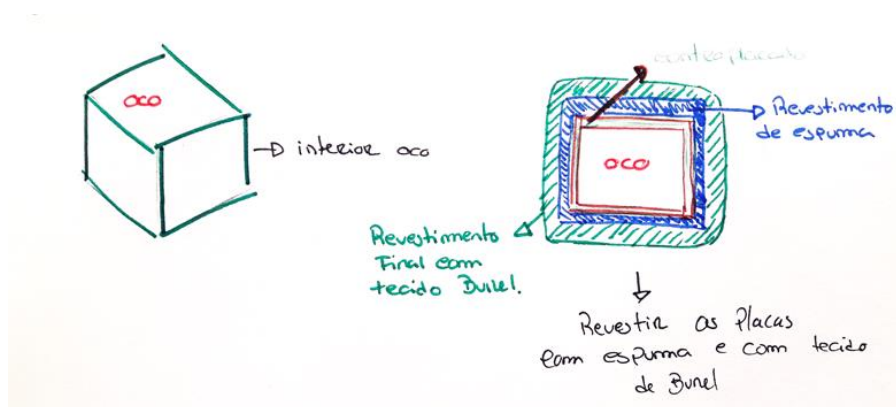 oco
interior oco
contraplacado
Revestimento
de espuma
oco
Revestimento
Final com
tecido Burel.
Revestir as Placas
com espuma e com tecido
de Burel